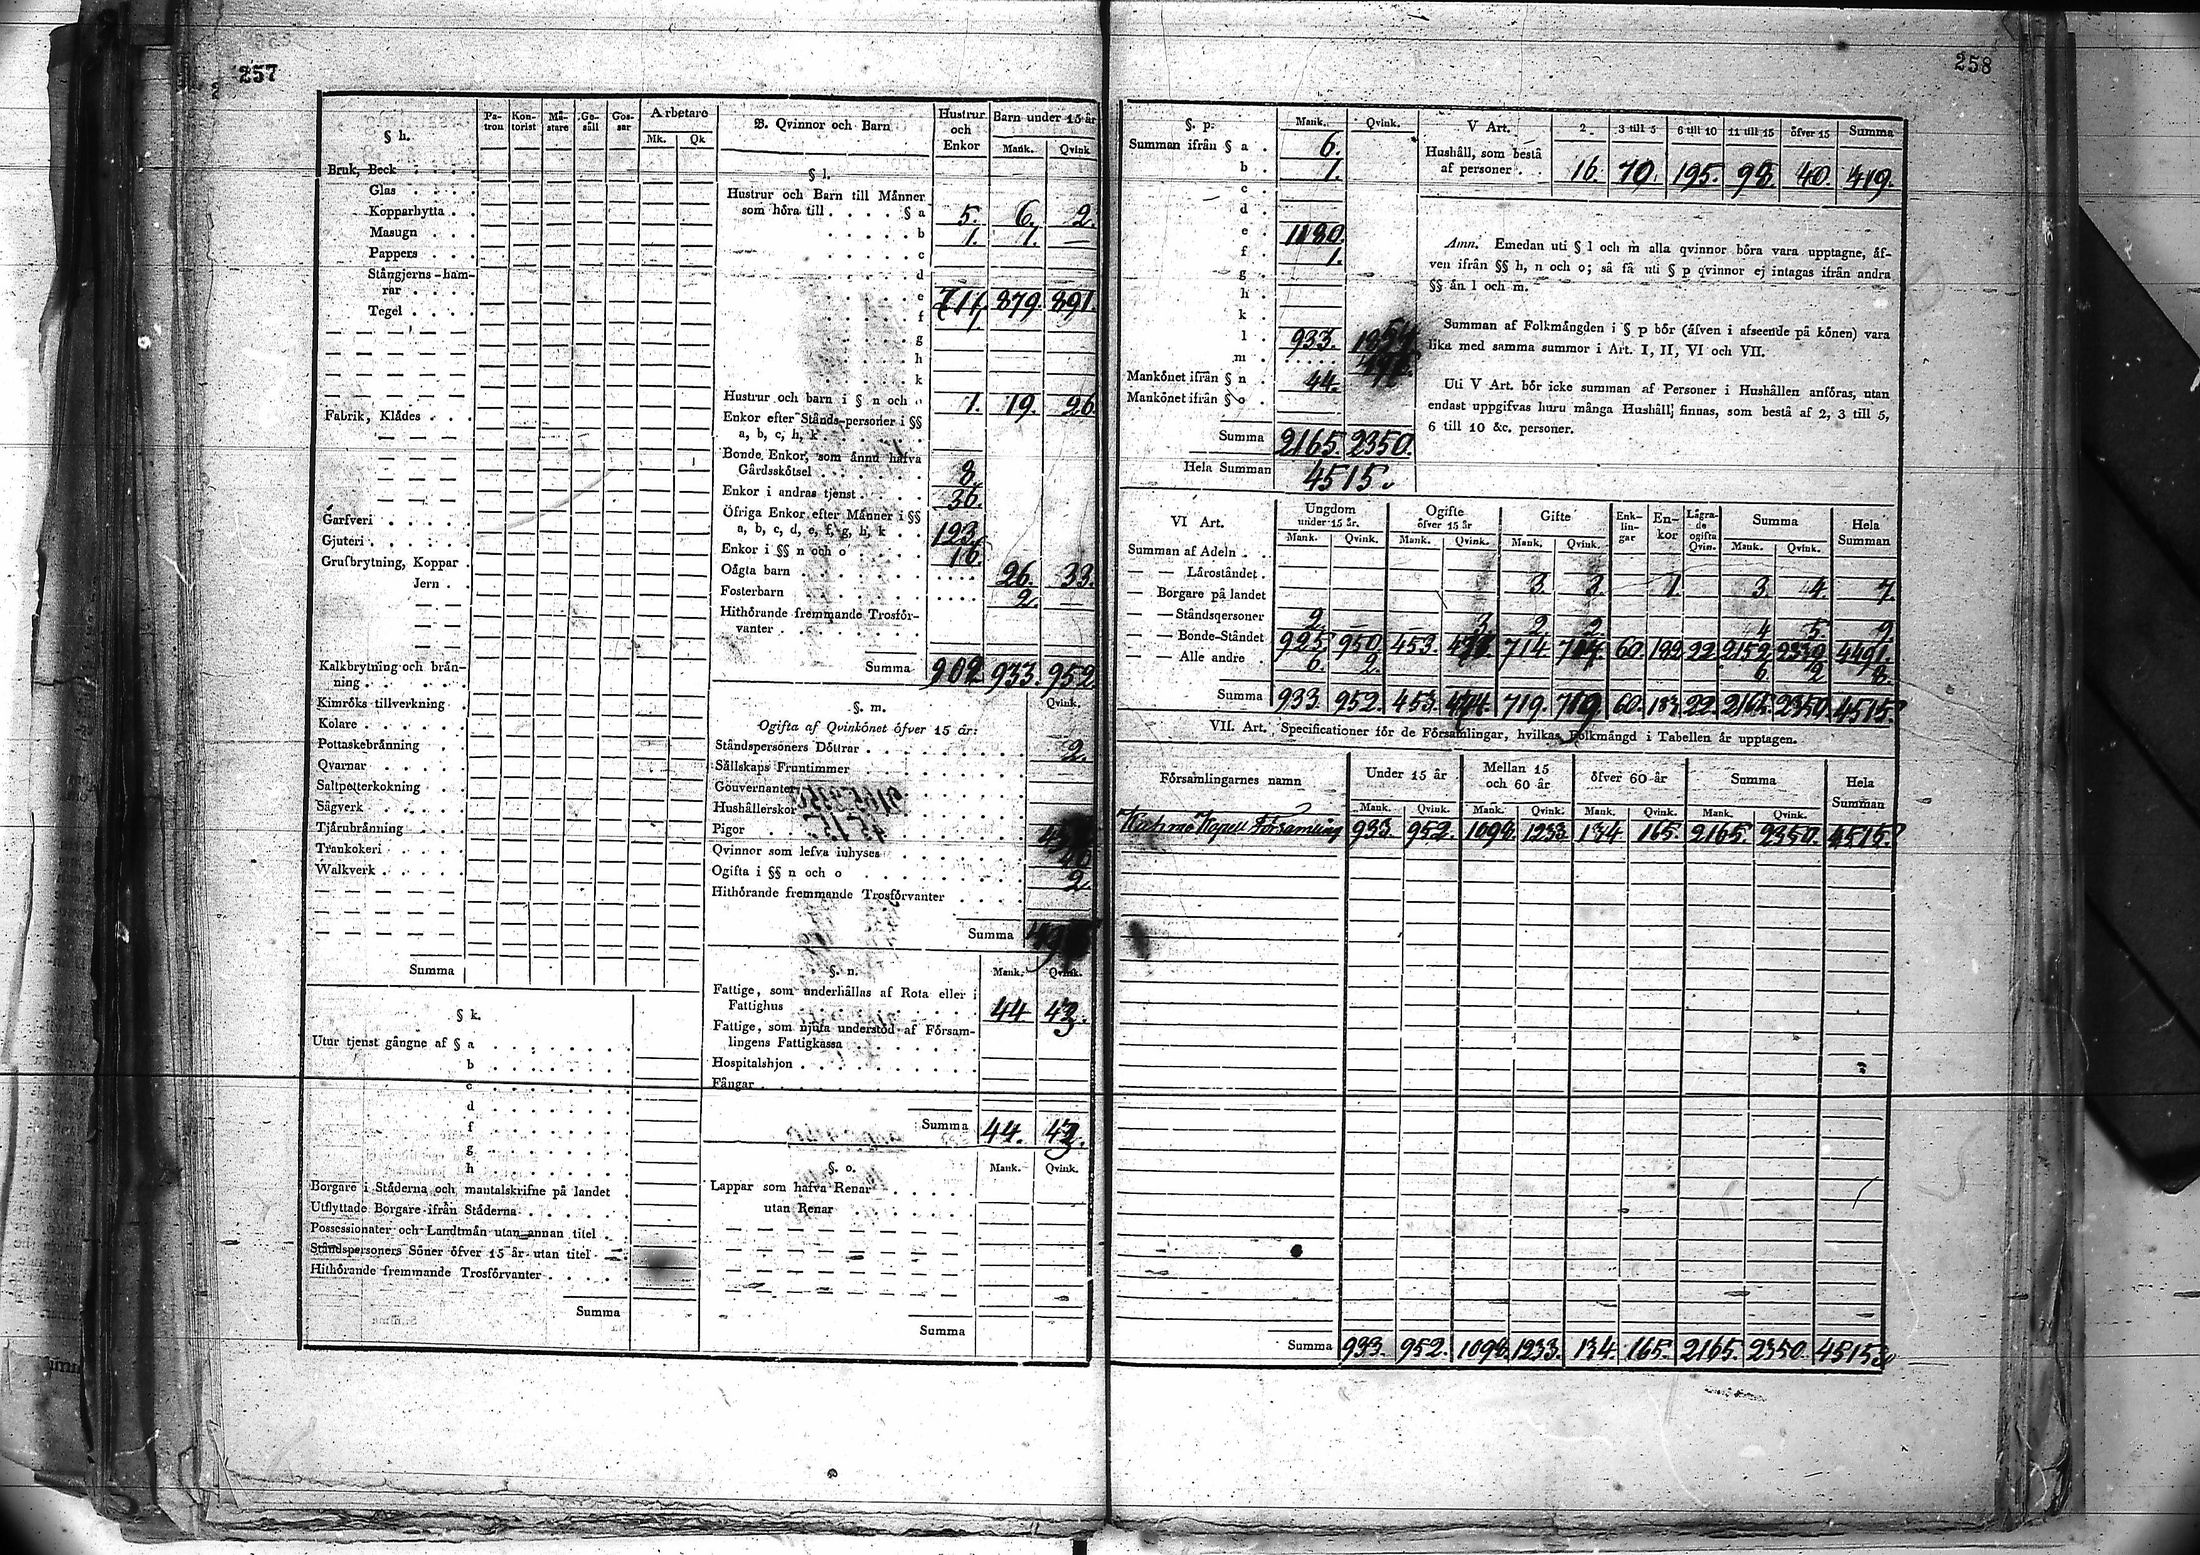 257
§ h.
Pa-tron Kon-torist Må-stare Ge-säll Gos-sar Arbetare
Mk. Qk
Bruk, Beck
Glas
Kopparhytta
Masugn
Pappers
Stångjerns-ham-
rar
Tegel
Fabrik, Klådes
Garfveri
Gjuteri
Grufbrytning, Koppar
Jern
Kalkbrytning och brån-
ning
Kimróks tillverkning
Kolare
Pottaskebrånning
Qvarnar
Saltpetterkokning
Sågverk
Tjårubrånning
Trankokeri
Walkverk
Summa
§ k.
Utur tjenst gångne af § a
b
c
d
f
g
h
Borgare i Ståderna och mantalskrifne på landet
Utflyttade Borgare ifrån Ståderna
Possessionater och Landtmån utan annan titel
Ståndspersoners Sóner ófver 15 år utan titel
Hithórande fremmande Trosfórvanter
Summa
B. Qvinnor och Barn
Hustrur och Enkor Barn under 15 år
Mank. Qvink
§ l.
Hustrur och Barn till Månner
som hóra till § a 5. 6. 2.
b 1. 1. —
c
d
e 711 879. 891.
f 1
g
h
k
Hustrur och barn i § n och o 1. 19. 26
Enkor efter Stånds-personer i §§
a, b, c, h, k
Bonde Enkor, som ånnu hafva
Gårdsskótsel 8
Enkor i andras tjenst 36.
Öfriga Enkor efter Månner i §§
a, b, c, d, e, f, g, h, k 123
Enkor i §§ n och o 16.
Oågta barn 26. 33.
Fosterbarn 2. —
Hithórande fremmande Trosfór-
vanter
Summa 902 933. 952.
§. m.
Qvink.
Ogifta af Qvinkónet ófver 15 år:
Ståndspersoners Dóttrar 2.
Sållskaps Fruntimmer
Gouvernanter
Hushållerskor
Pigor
Qvinnor som lefva inhyses
Ogifta i §§ n och o 2
Hithórande fremmande Trosfórvanter
Summa
§. n.
Mank. Qvink.
Fattige, som underhållas af Rota eller i
Fattighus 44 43.
Fattige, som njuta understód af Fórsam-
lingens Fattigkassa
Hospitalshjon
Fångar
Summa 44. 43.
§. o.
Mank. Qvink.
Lappar som hafva Renar
utan Renar
Summa
258
§. p. Mank. Qvink.
Summan ifrån § a 6.
b 1.
c
d
e 1180.
f 1.
g
h
k
l 933. 1854
m
Mankónet ifrån § n 44.
Mankónet ifrån § o
Summa 2165. 2350.
Hela Summan 4515.
V Art. 2 3 till 5 6 till 10 11 till 15 ófver 15 Summa
Hushåll, som bestå
af personer 16. 70. 195. 98. 40. 419.
Anm. Emedan uti § l och m alla qvinnor bóra vara upptagne, åf-
ven ifrån §§ h, n och o; så få uti § p qvinnor ej intagas ifrån andra
§§ ån l och m.
Summan af Folkmångden i § p bór (åfven i afseende på kónen) vara
lika med samma summor i Art. I, II, VI och VII.
Uti V Art. bór icke summan af Personer i Hushållen anfóras, utan
endast uppgifvas huru många Hushåll finnas, som bestå af 2, 3 till 5,
6 till 10 &c. personer.
VI Art. Ungdom under 15 år. Ogifte ófver 15 år Gifte Enk-lin-gar En-kor Lågra-de ogifta Qvin. Summa Hela Summan
Mank. Qvink. Mank. Qvink. Mank. Qvink. Mank. Qvink.
Summan af Adeln
— — Låroståndet 3 3. 1. 3. 4. 7.
— Borgare på landet
— — Ståndspersoner 2. — — 3 2 2. 4 5. 9.
— — Bonde-Ståndet 925. 950. 453. 471 714 714 60. 182 22 2152. 2339. 4491.
— — Alle andre 6. 2. 6. 2 8.
Summa 933. 952. 453. 474. 719. 719 60. 183 22. 2165. 2350. 4515.
VII. Art. Specificationer fór de Fórsamlingar, hvilkas Folkmångd i Tabellen år upptagen.
Fórsamlingarnes namn Under 15 år Mellan 15 och 60 år ófver 60 år Summa Hela Summan
Mank. Qvink. Mank. Qvink. Mank. Qvink. Mank. Qvink.
Kapell Församling 933. 952. 1098. 1233. 134. 165. 2165. 2350. 4515.
Summa 933. 952. 1098. 1233. 134. 165. 2165. 2350. 4515.